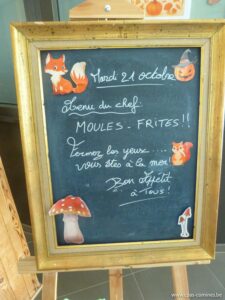 Mardi 21 octobre
Menu du chef:
MOULES - FRITES!!
Fermez les yeux.....
vous êtes à la mer!
Bon Appétit
à Tous!
www.cpas-comines.be